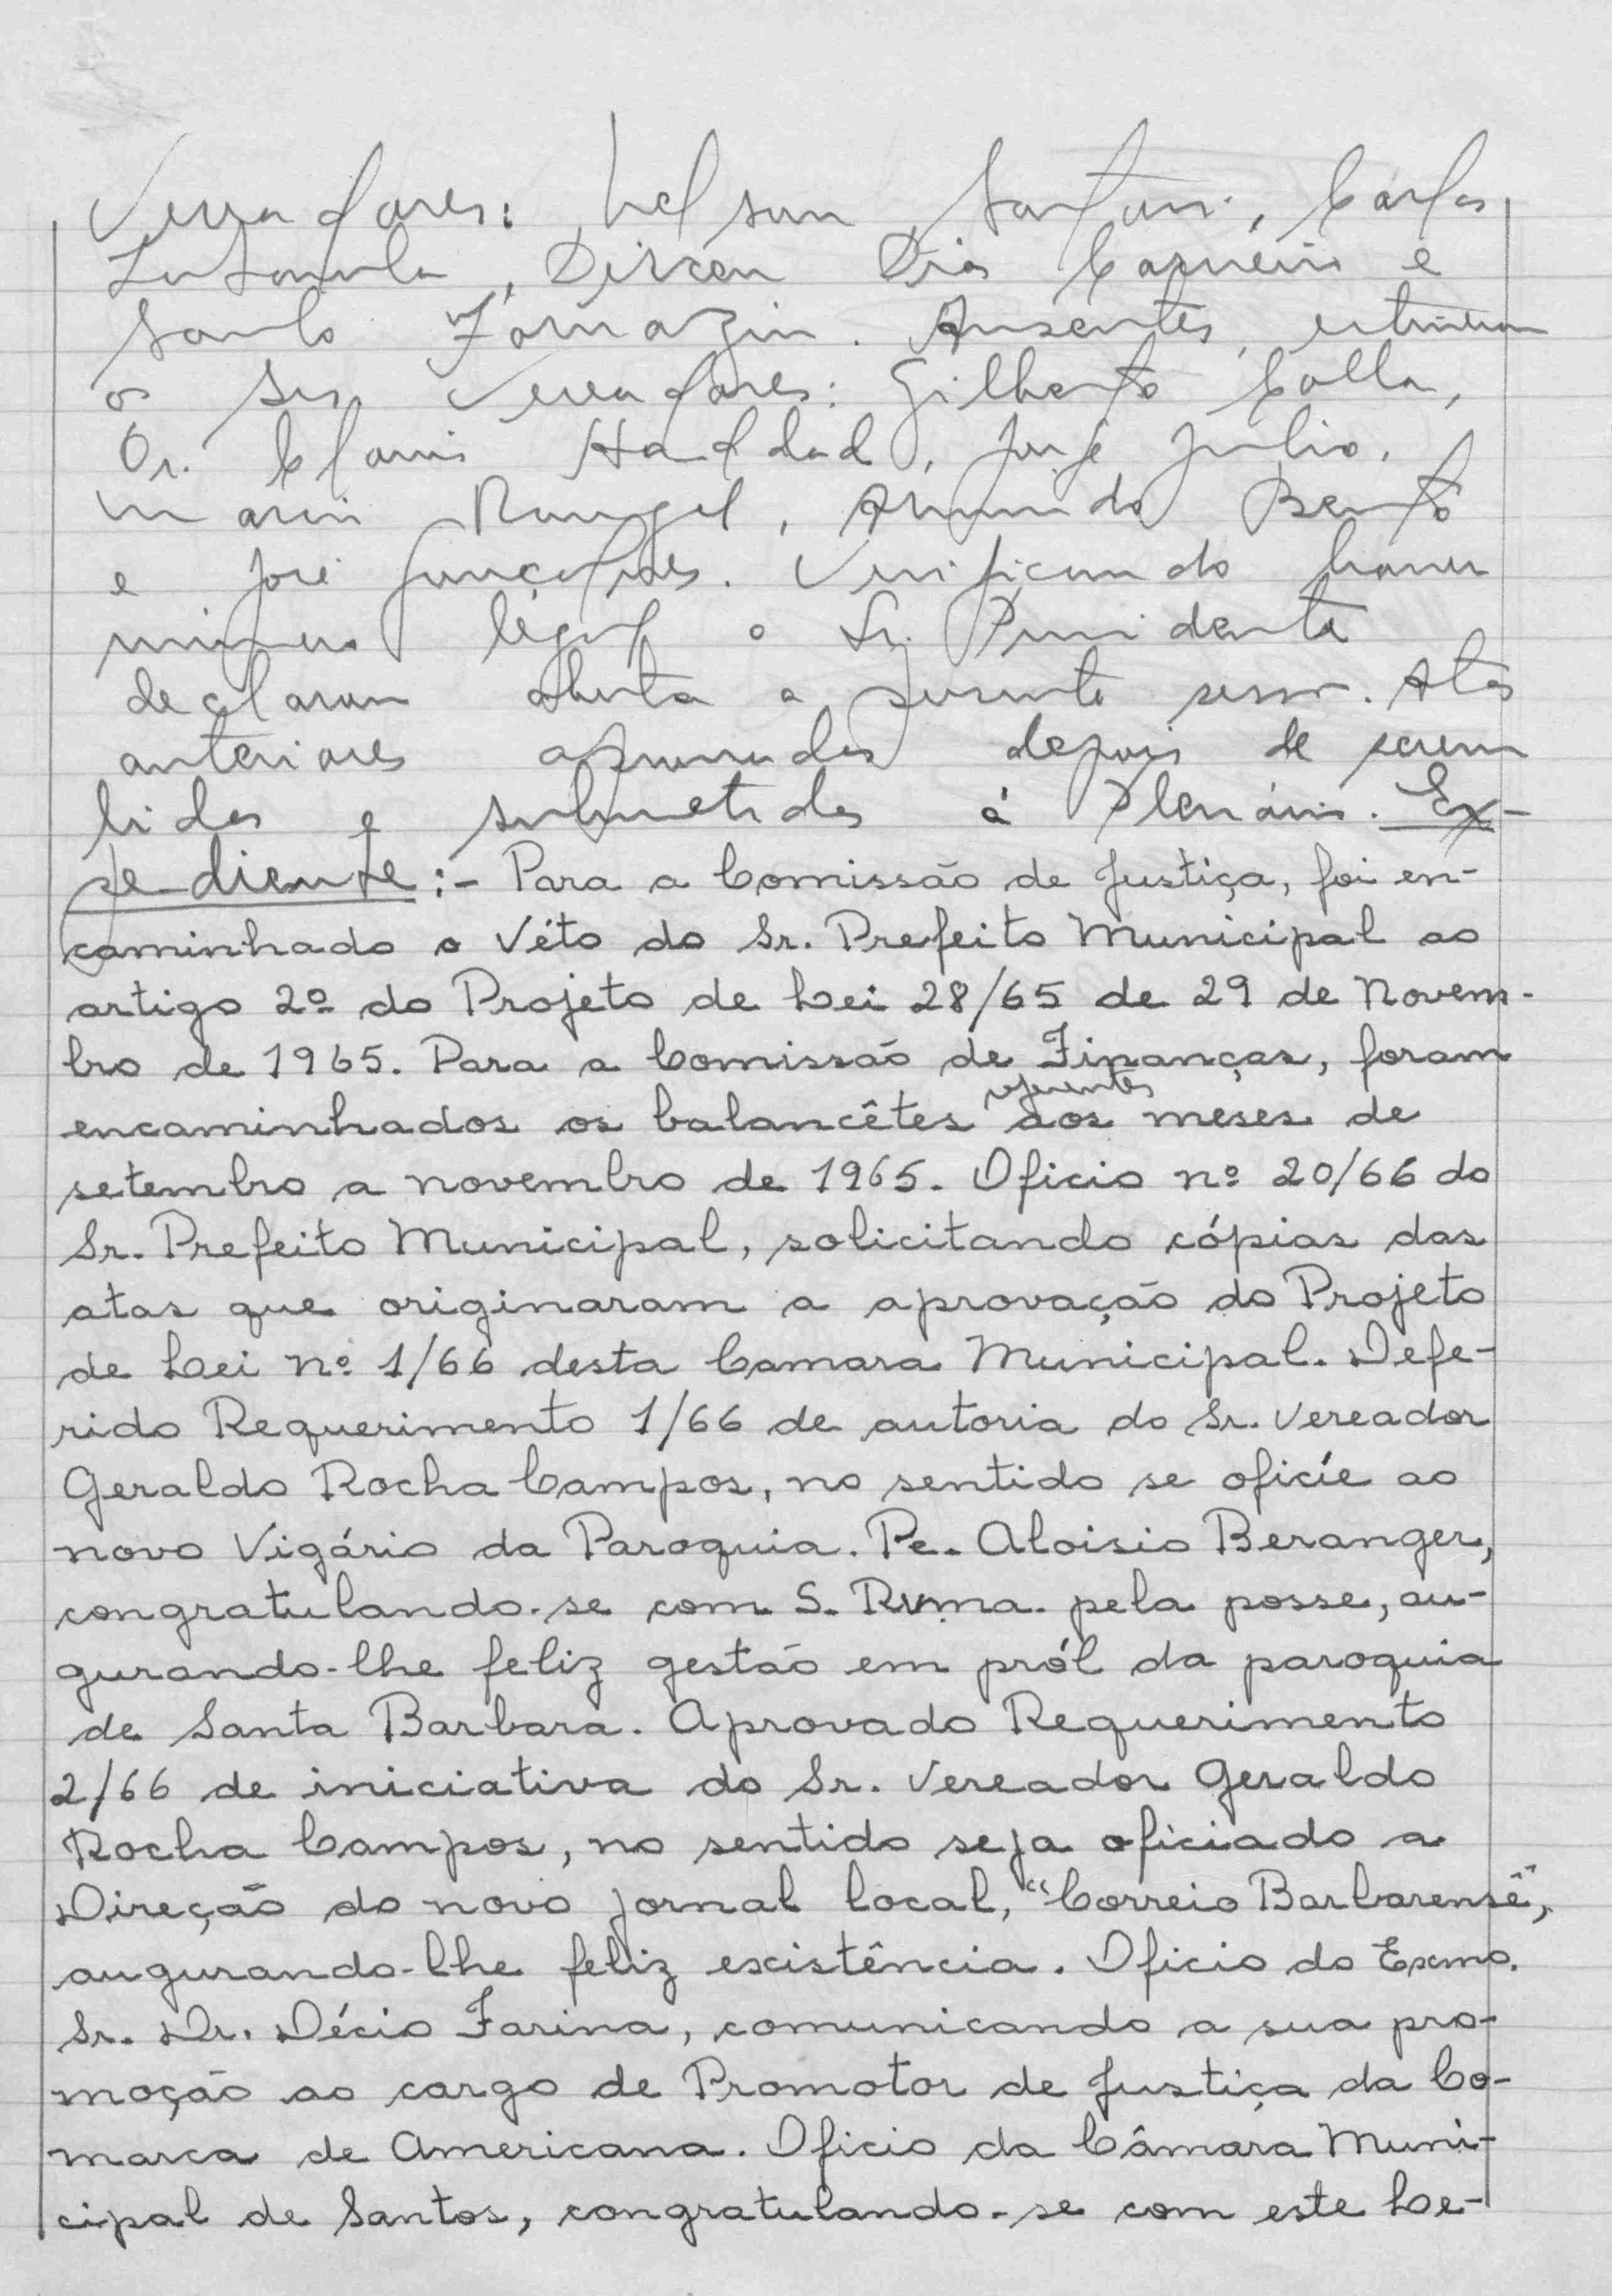 Vereadores: Nelson Santani, Carlos
Dirceu Dias Carneiro e
Santo Fornazin. Ausentes, estiveram
os Srs Vereadores: Gilberto Colla,
Dr. Clovis Haddad, José Julio,
Mario Rangel, Armindo Bento
e José Gonçalves. Verificando haver
número legal o Sr. Presidente
declarou aberta a presente sessão. Atas
anteriores aprovadas depois de serem
lidas e submetidas á Plenário. Ex-
pediente:- Para a Comissão de Justiça, foi en-
caminhado o Véto do Sr. Prefeito Municipal ao
artigo 2º do Projeto de Lei 28/65 de 29 de Novem-
bro de 1965. Para a Comissão de Finanças, foram
encaminhados os balancêtes referentes aos meses de
setembro a novembro de 1965. Oficio nº 20/66 do
Sr. Prefeito Municipal, solicitando cópias das
atas que originaram a aprovação do Projeto
de Lei nº 1/66 desta Camara Municipal. Defe-
rido Requerimento 1/66 de autoria do Sr. Vereador
Geraldo Rocha Campos, no sentido se oficíe ao
novo Vigário da Paroquia. Pe. Aloisio Beranger,
congratulando-se com S. Rvma. pela posse, au-
gurando-lhe feliz gestão em pról da paroquia
de Santa Barbara. Aprovado Requerimento
2/66 de iniciativa do Sr. Vereador Geraldo
Rocha Campos, no sentido seja oficiado a
Direção do novo jornal local, "Correio Barbarensê",
augurando-lhe feliz existência. Oficio do Exmo.
Sr. Dr. Décio Farina, comunicando a sua pro-
moção ao cargo de Promotor de Justiça da Co-
marca de Americana. Oficio da Câmara Muni-
cipal de Santos, congratulando-se com este Le-